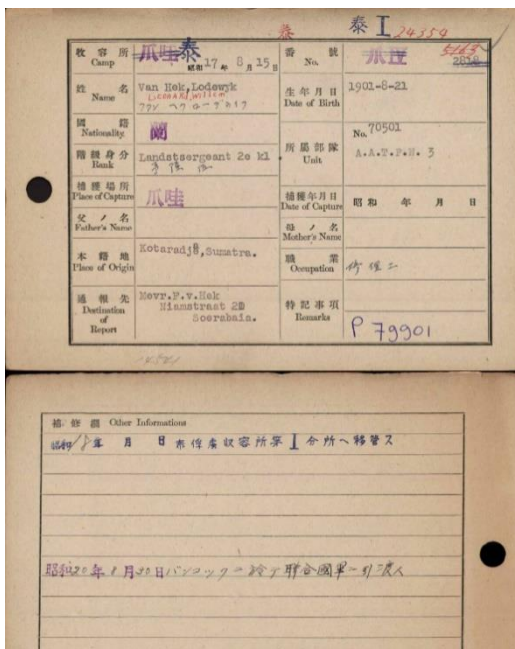 泰 泰 I 24354
收容所 Camp 爪哇 泰 昭和17年8月15日
番號 No. 爪哇 5163 2818
姓名 Name Van Hek,Lodewyk
Leonard, Willem
生年月日 Date of Birth 1901-8-21
國籍 Nationality 蘭
階級身分 Rank Landstsergeant 2e kl
所屬部隊 Unit No. 70501
A.A.T.P.N. 3
捕獲場所 Place of Capture 爪哇
捕獲年月日 Date of Capture 昭和 年 月 日
父ノ名 Father's Name
母ノ名 Mother's Name
本籍地 Place of Origin Kotaradja,Sumatra.
職業 Occupation
通報先 Destination of Report Mevr.P.v.Hek
Niamstraat 20
Soerabaia.
特記事項 Remarks P 79901
補修欄 Other Informations
昭和18年 月 日 泰俘虜収容所第I分所ヘ移管ス
昭和20年8月30日バンコックニ於テ聯合國軍ヘ引渡